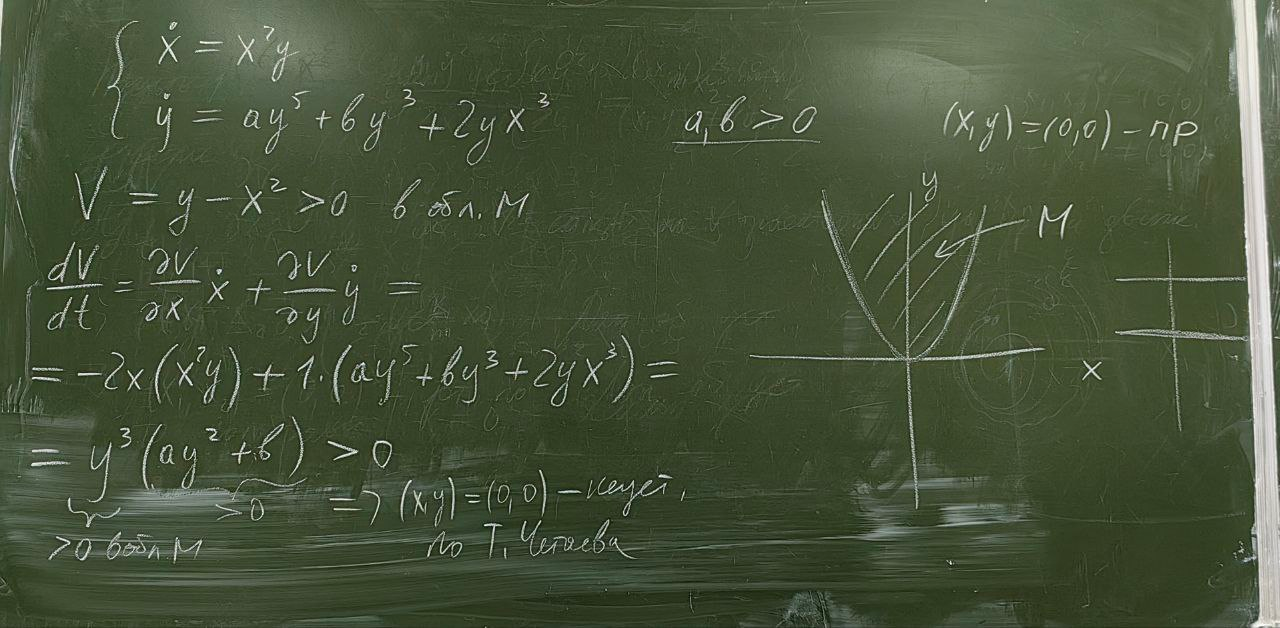 ẋ = x²y
ẏ = ay⁵ + by³ + 2yx³
a, b > 0
(x, y) = (0, 0) – пр
V = y – x² > 0 в обл. M
dV/dt = ∂V/∂x ẋ + ∂V/∂y ẏ =
= –2x(x²y) + 1·(ay⁵ + by³ + 2yx³) =
= y³(ay² + b) > 0
> 0 в обл M
> 0
=> (x, y) = (0, 0) – неуст.
по Т. Четаева
y
M
x